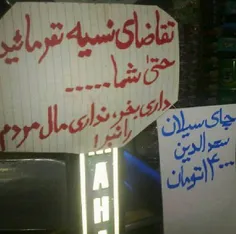 تقاضای نسیه نفرمائید
حتی شما.....
داری بخر، نداری مال مردم
را نبر!
چای سیلان
سعدالدین
۱۴۰۰۰ تومان
AH